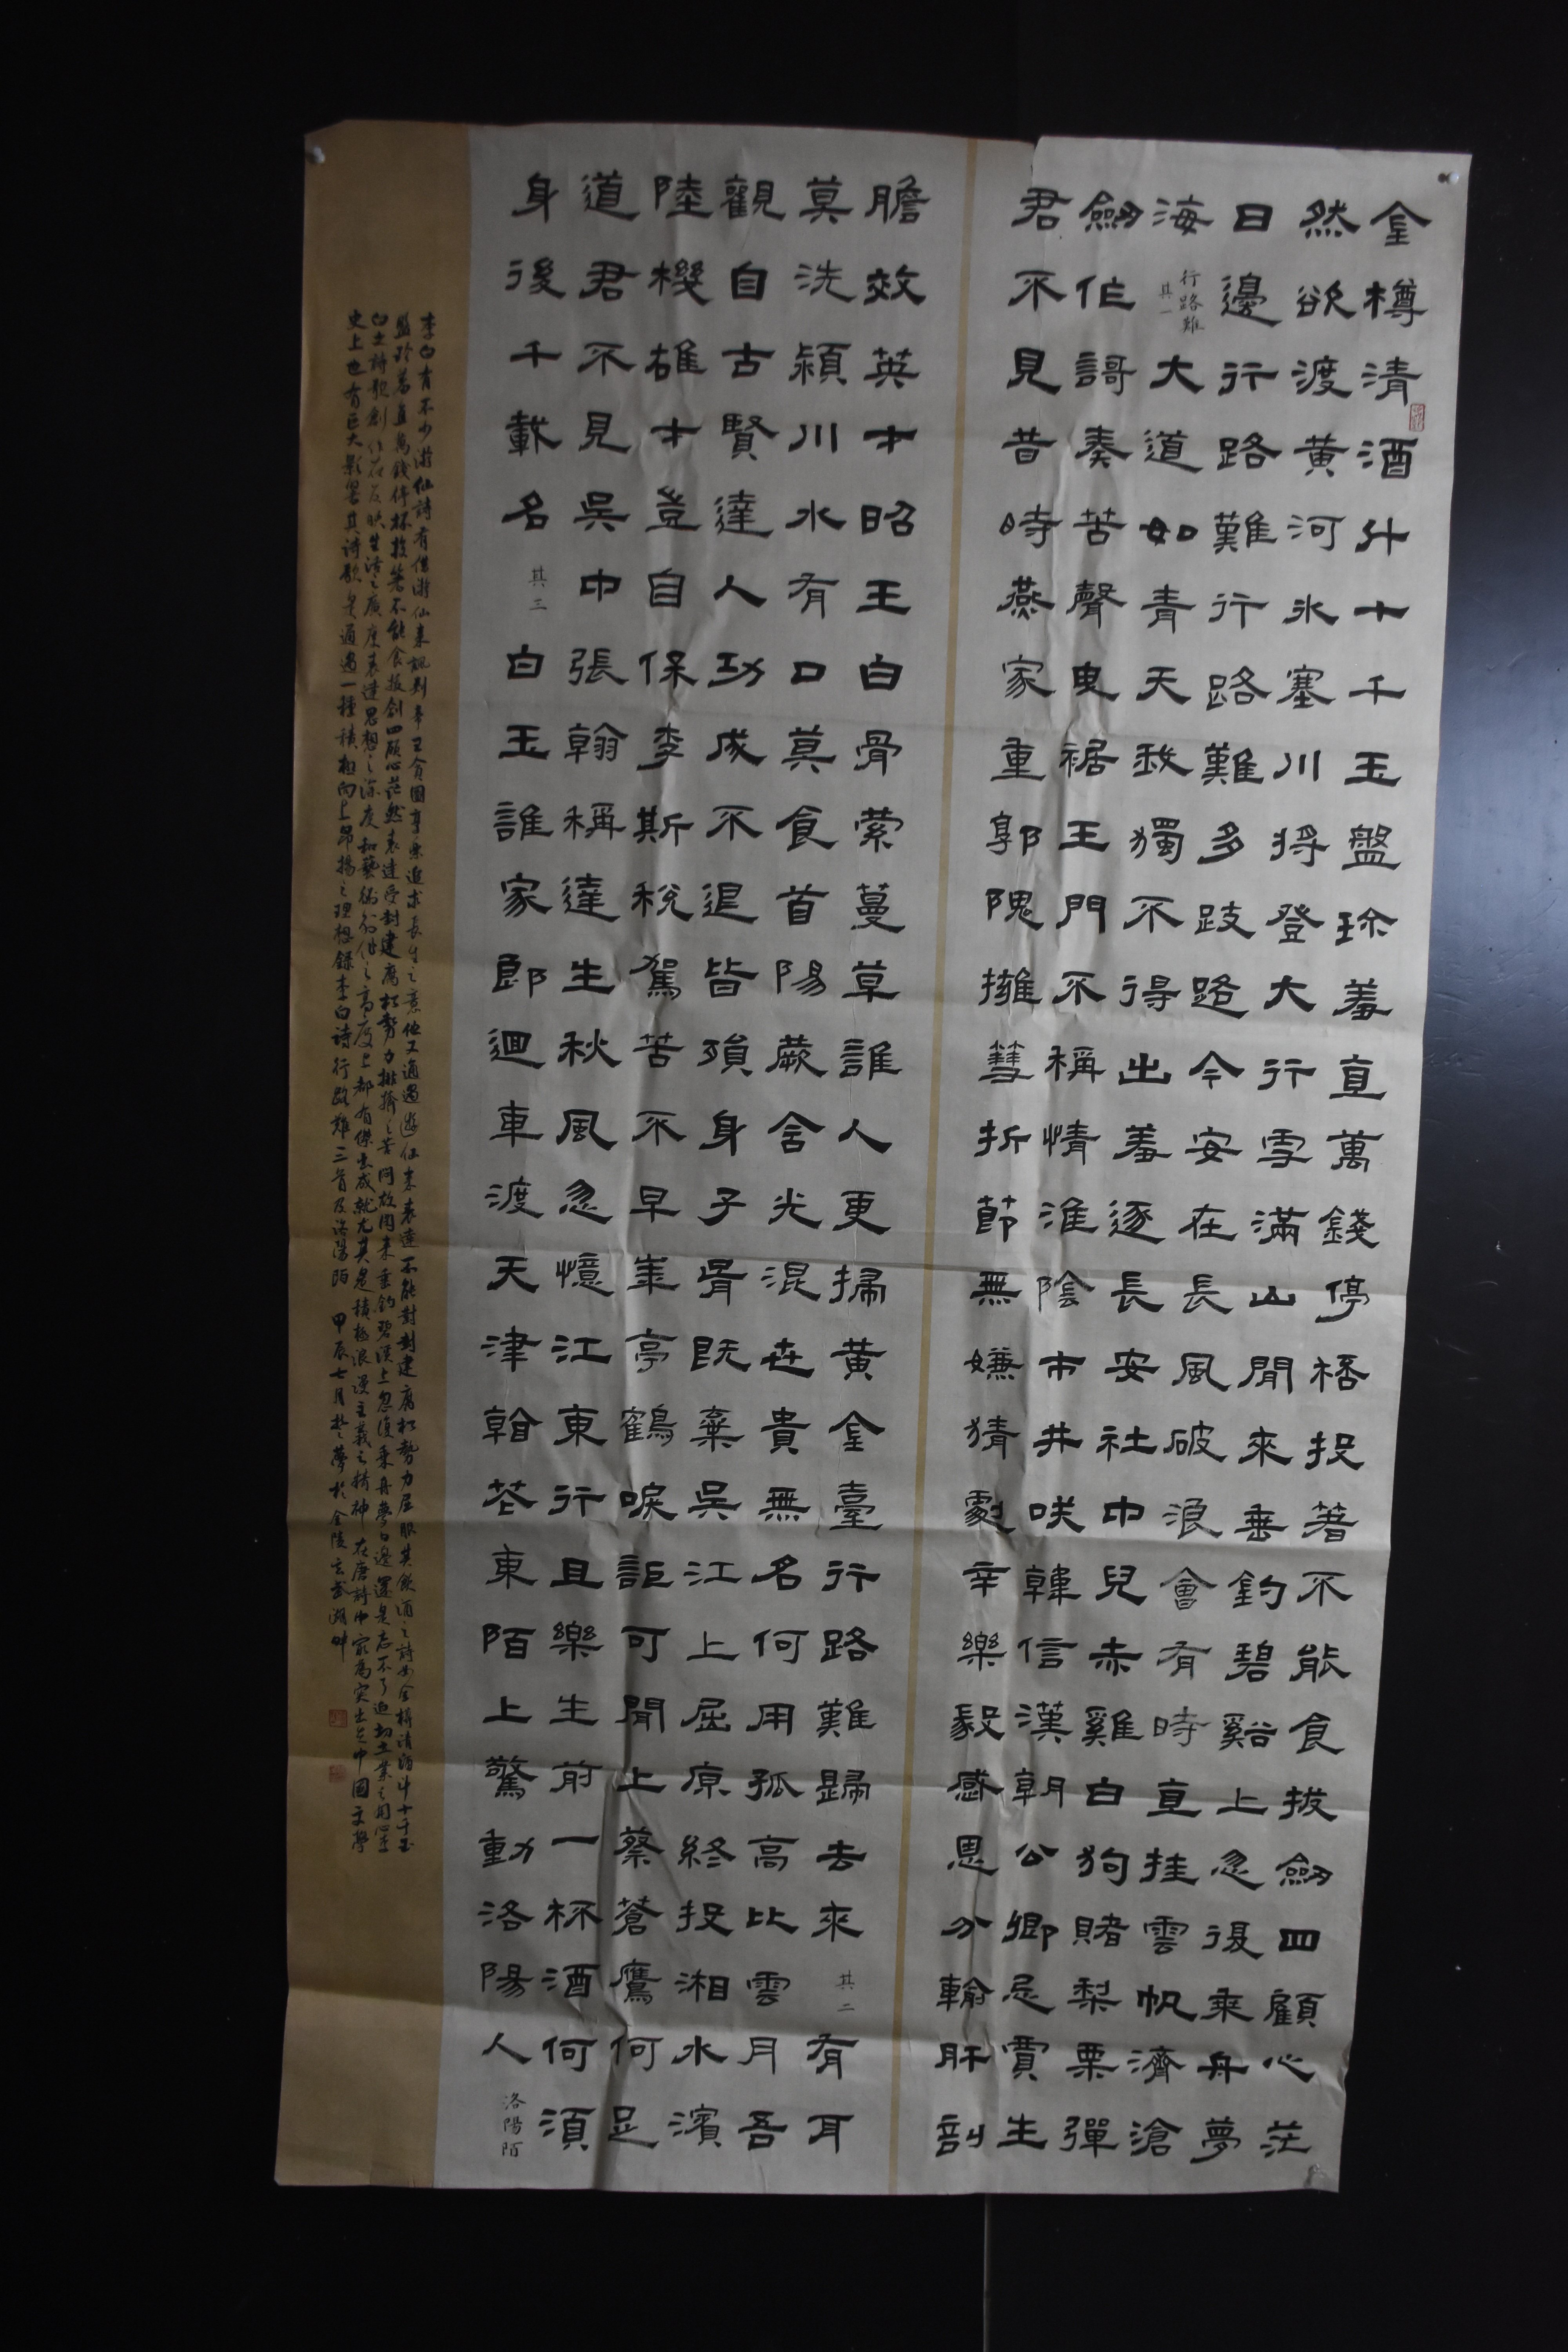 金樽清酒斗十千玉盤珎羞直萬錢停桮投箸不能食拔劒四顧心茫
然欲渡黃河冰塞川將登大行雪滿山閒來垂釣碧谿上忽復乘舟夢
日邊行路難行路難多歧路今安在長風破浪會有時直挂雲帆濟滄
海 行路難其一 大道如青天我獨不得出羞逐長安社中兒赤雞白狗賭梨栗彈
劒作謌奏苦聲曳裾王門不稱情淮陰市井咲韓信漢朝公卿忌賈生
君不見昔時燕家重郭隗擁篲折節無嫌猜劇辛樂毅感恩分輸肝剖
膽效英才昭王白骨縈蔓草誰人更掃黃金臺行路難歸去來 其二 有耳
莫洗潁川水有口莫食首陽蕨含光混世貴無名何用孤高比雲月吾
觀自古賢達人功成不退皆殞身子胥既棄吳江上屈原終投湘水濱
陸機雄才豈自保李斯稅駕苦不早華亭鶴唳詎可聞上蔡蒼鷹何足
道君不見吳中張翰稱達生秋風忽憶江東行且樂生前一杯酒何須
身後千載名 其三 白玉誰家郎迴車渡天津看花東陌上驚動洛陽人 洛陽陌
李白有不少游仙詩有借游仙來諷刺帝王貪圖享樂追求長生之意他又通過遊仙來表達不能對封建腐朽勢力屈服其飲酒之詩如金樽清酒斗十千玉
盤珍羞直萬錢停杯投箸不能食拔劍四顧心茫然表達受封建腐朽勢力排擠之苦悶故閒來垂釣碧溪上忽復乘舟夢日邊還是忘不了追切之業之用心李
白之詩歌創作在反映生活之廣度表達思想之深度和藝術價值之高度上都有傑出成就尤其是積極浪漫主義之精神在唐詩中最為突出在中國文學
史上也有巨大影響其詩歌是通過一種積極向上昂揚之理想錄李白詩行路難三首及洛陽陌 甲辰七月楚夢於金陵玄武湖畔